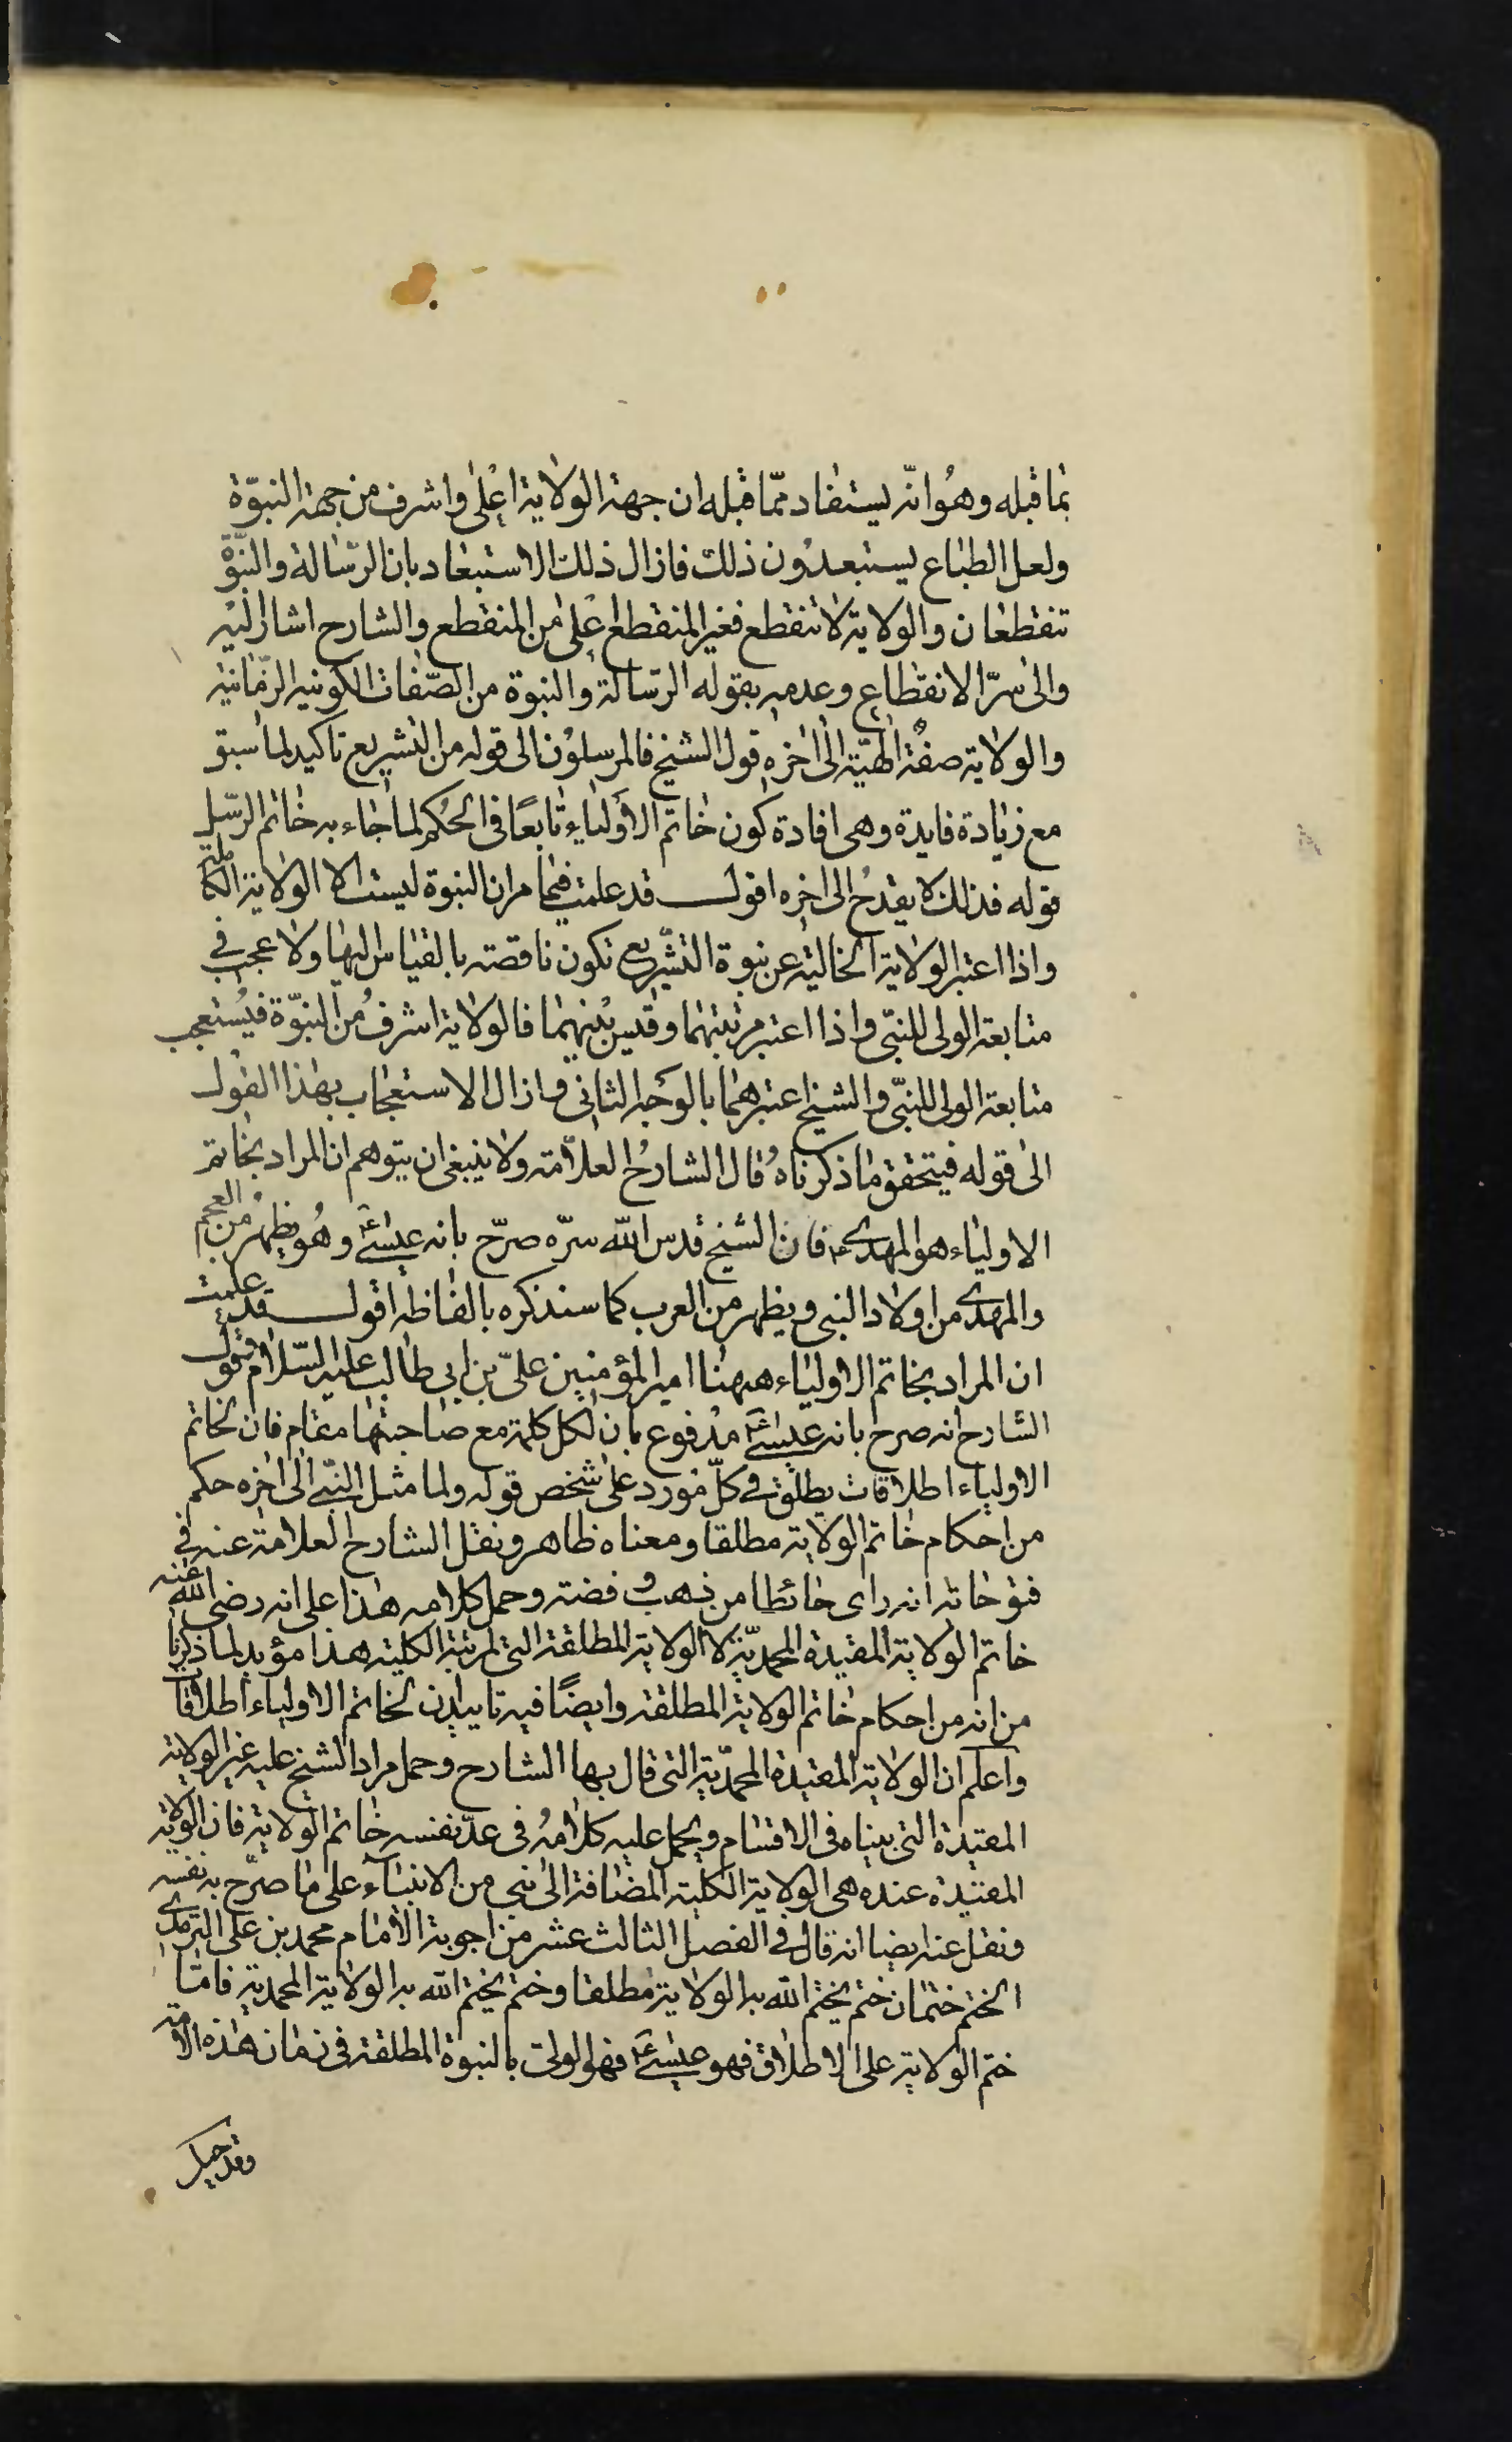 بما قبله وهو انّه يستفاد ممّا قبله ان جهة الولاية اعلى واشرف من جهة النبوّة
ولعل الطباع يستبعدون ذلك فازال ذلك الاستبعاد بان الرّسالة والنبّوة
تنقطعان والولاية لا تنقطع فغير المنقطع اعلى من المنقطع والشارح اشار اليه
والى سرّ الانقطاع وعدمه بقوله الرّسالة والنبوة من الصّفات الكونيه الزّمانيّه
والولاية صفة الهيّة الى اخره قول الشيخ فالمرسلون الى قوله من التشريع تاكيد لما سبق
مع زيادة فايدة وهى افادة كون خاتم الاولياء تابعًا فى الحكم لما جاء به خاتم الرّسل
قوله فذلك لا يقدح الى اخره اقول قد علمت فيما مر ان النبوة ليست الا الولاية الكاملة
واذا اعتبر الولاية الخالية عن نبوة التشّريع تكون ناقصة بالقياس اليها ولا عجب فى
متابعة الولى للنبّى واذا اعتبر مرتبتهما وقيس بينهما فالولاية اشرف من النبوّة فيستعجب
متابعة الولى للنبّى والشيخ اعتبرهما بالوجه الثانى وازال الاستعجاب بهذا القول
الى قوله فيتحقق ما ذكرناه قال الشارح العلاّمة ولا ينبغى ان يتوهم ان المراد بخاتم
الاولياء هو المهدى ع فان الشيخ قدس الله سرّه صرّح بانه عيسى ع وهو يظهر من العجم
والمهدى من اولاد النبى ويظهر من العرب كما سنذكره بالفاظه اقول قد علمت
ان المراد بخاتم الاولياء ههنا امير المؤمنين علىّ بن ابى طالب عليه السّلام فقول
الشارح انه صرح بانه عيسى ع مدفوع بان لكل كلمة مع صاحبتها مقام فان لخاتم
الاولياء اطلاقات يطلق فى كلّ مورد على شخص قوله ولما مثل النبّى الى اخره حكم
من احكام خاتم الولاية مطلقا ومعناه ظاهر ونقل الشارح العلامة عنه فى
فتوحاته انه راى حائطا من ذهب و فضة وحمل كلامه هذا على انه رضى الله عنه
خاتم الولاية المقيدة المحمديّة لا الولاية المطلقة التى لمرتبة الكلية هذا مؤيد لما ذكرنا
من انه من احكام خاتم الولاية المطلقة وايضًا فيه تاييد ان لخاتم الاولياء اطلاقات
واعلم ان الولاية المقيدة المحمّدية التى قال بها الشارح وحمل مراد الشيخ عليه غير الولاية
المقيدة التى بيناه فى الاقسام ويحمل عليه كلامه فى عدّ نفسه خاتم الولاية فان الولاية
المقيدة عنده هى الولاية الكلية المضافة الى نبى من الانبياء على ما صرّح به نفسه
ونقل عنه ايضا انه قال فى الفصل الثالث عشر من اجوبة الامام محمد بن على الترمذى
الختم ختمان ختم يختم الله به الولاية مطلقا وختم يختم الله به الولاية المحمدية فامّا
ختم الولاية على الاطلاق فهو عيسى ع فهو الولى بالنبوة المطلقة فى زمان هذه الامة
وقد حيل